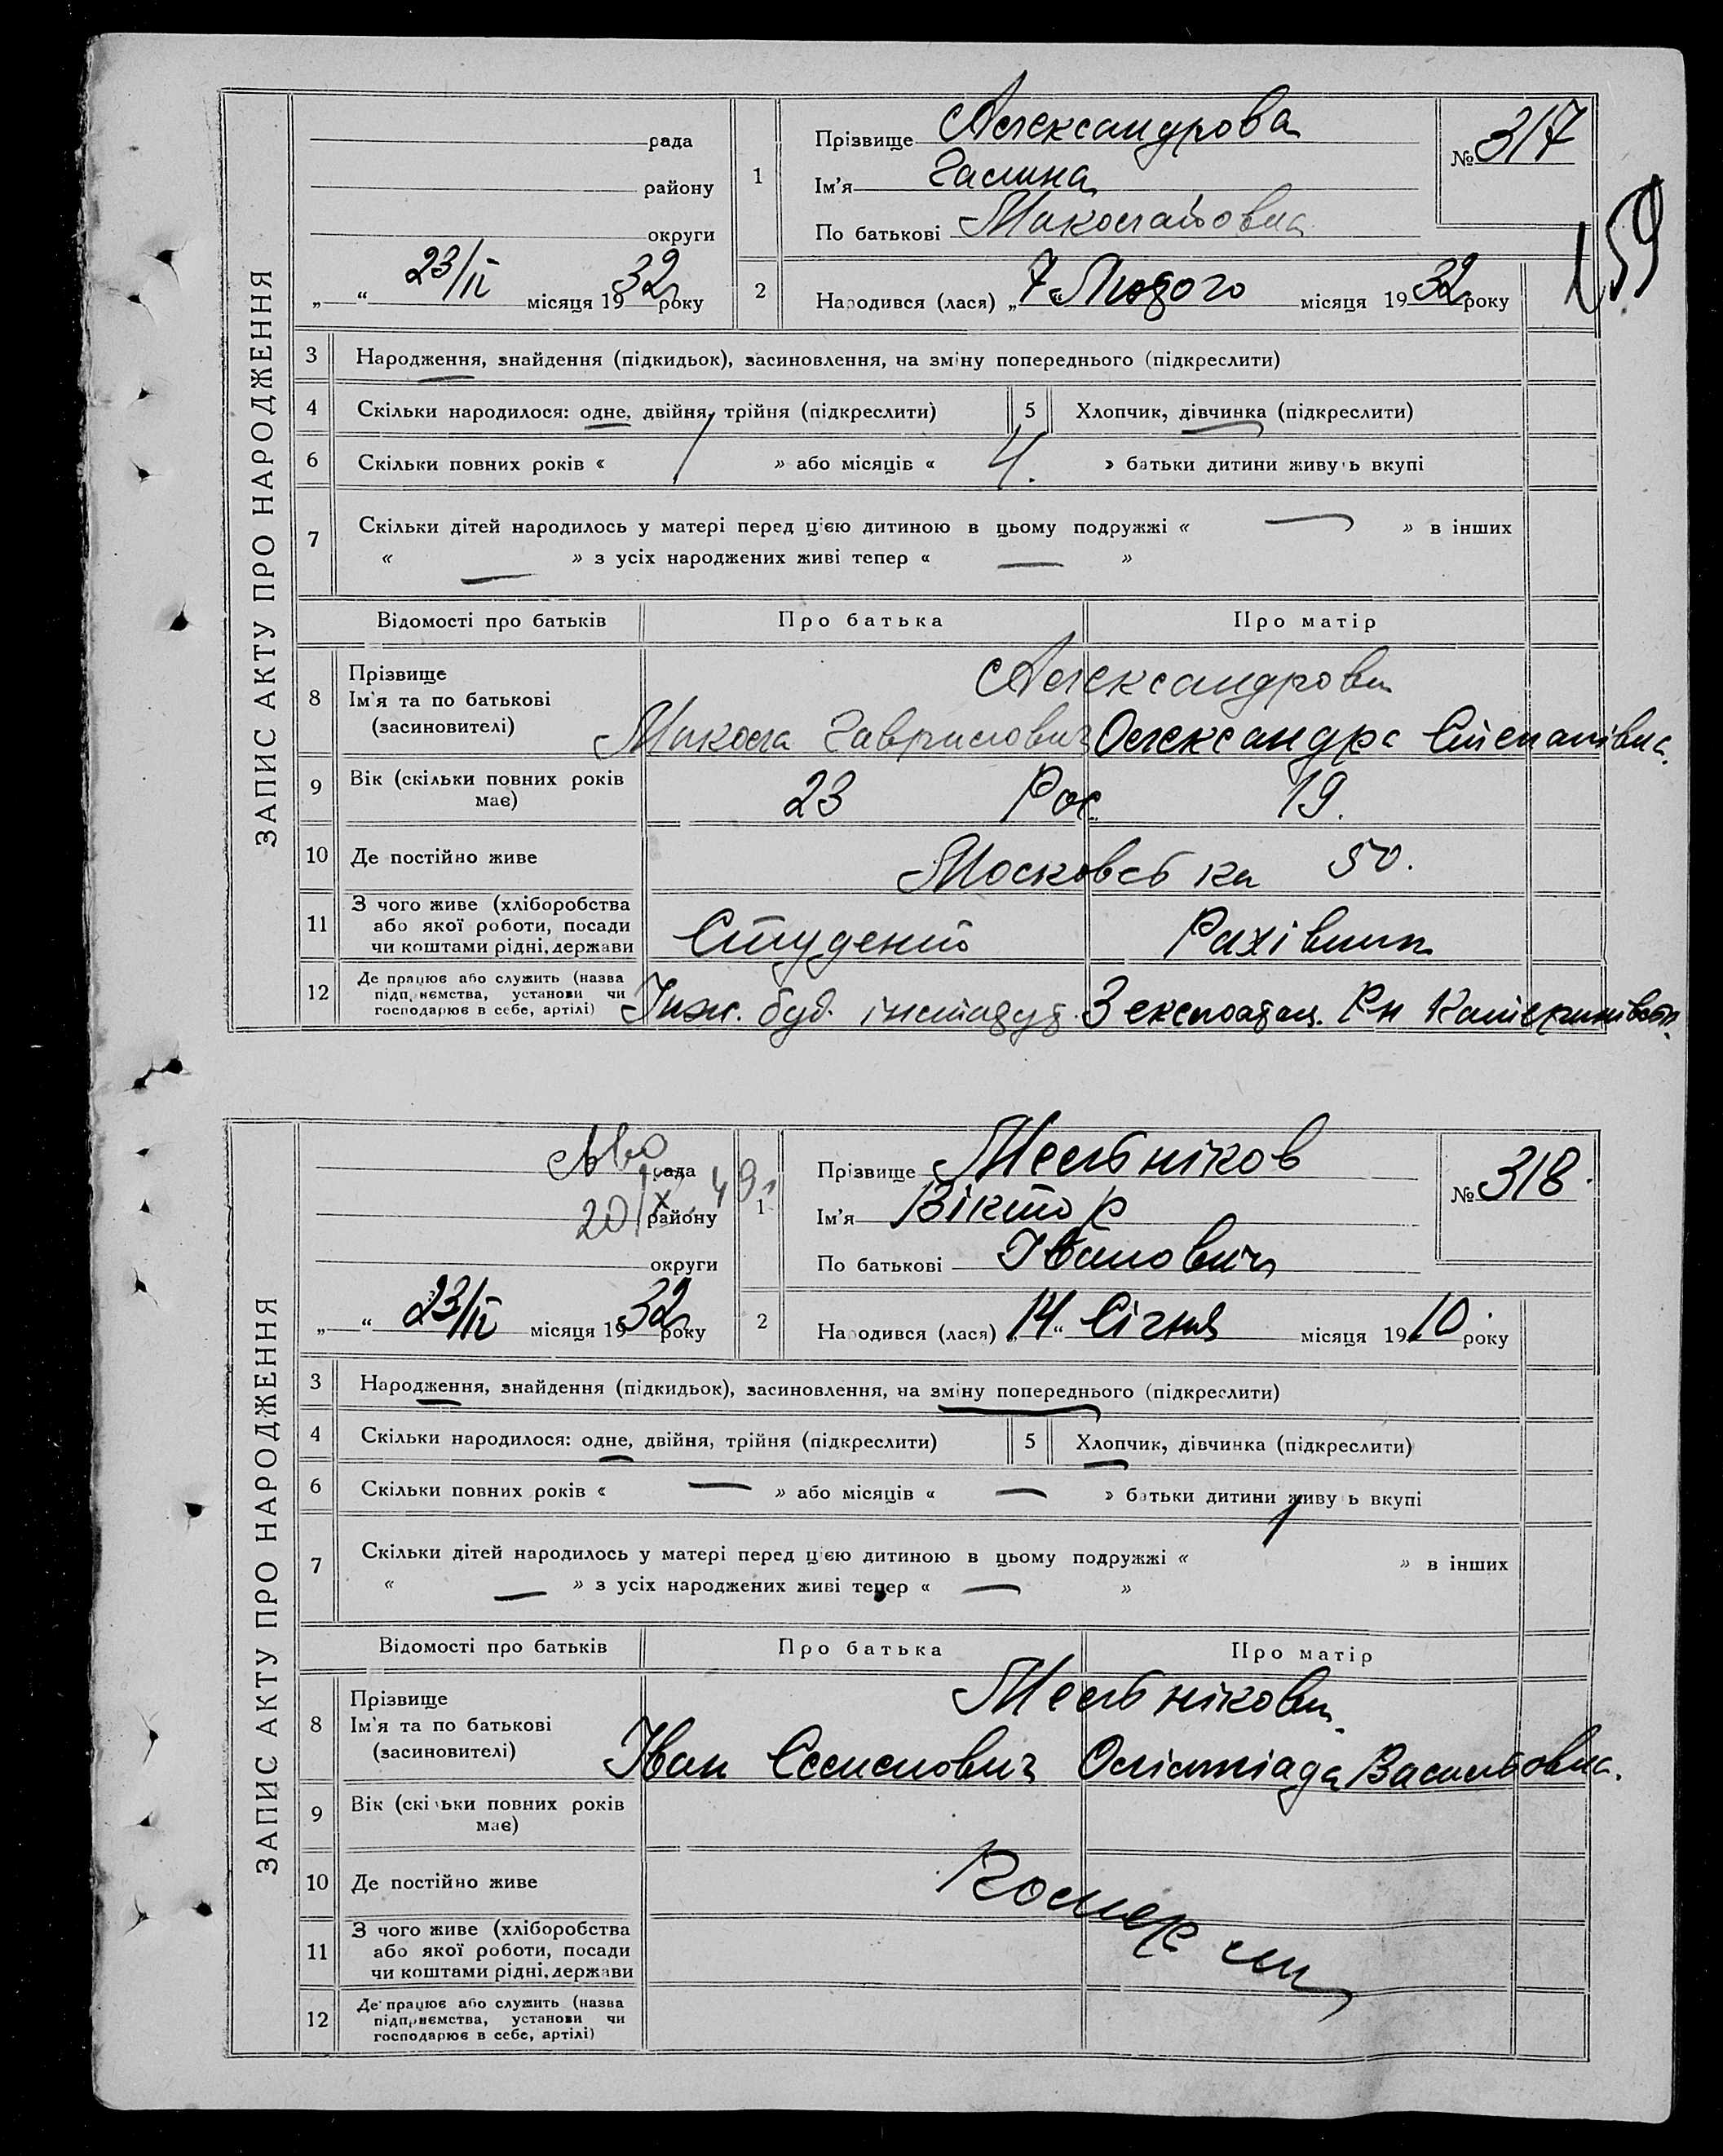 ЗАПИС АКТУ ПРО НАРОДЖЕННЯ
рада
району
округи
„ “ 23/II місяця 1932 року
1
Прізвище Александрова
Ім'я Галина
По батькові Миколайовна
№ 317
159
2
Народився (лася) „7“ Лютого місяця 1932 року
3 Народження, знайдення (підкидьок), засиновлення, на зміну попереднього (підкреслити)
4 Скільки народилося: одне, двійня, трійня (підкреслити)
5 Хлопчик, дівчинка (підкреслити)
6 Скільки повних років « / » або місяців « 4. » батьки дитини живуть вкупі
7 Скільки дітей народилось у матері перед цією дитиною в цьому подружжі « — » в інших
« — » з усіх народжених живі тепер « — »
Відомості про батьків Про батька Про матір
8 Прізвище
Ім'я та по батькові
(засиновителі)
Александрови
Микола Гаврилович Олександра Степанівна.
9 Вік (скільки повних років має)
23 Рос. 19.
10 Де постійно живе
Московська 50.
11 З чого живе (хліборобства
або якої роботи, посади
чи коштами рідні, держави
Студент Рахівниця
12 Де працює або служить (назва
підприємства, установи чи
господарює в себе, артілі)
Інж. буд. інститут. 3 експлоатац. Рн
ЗАПИС АКТУ ПРО НАРОДЖЕННЯ
рада
району
20/X 49
округи
„ “ 23/II місяця 1932 року
1
Прізвище Мельніков
Ім'я Віктор
По батькові Іванович
№ 318.
2
Народився (лася) „14“ Січня місяця 1910 року
3 Народження, знайдення (підкидьок), засиновлення, на зміну попереднього (підкреслити)
4 Скільки народилося: одне, двійня, трійня (підкреслити)
5 Хлопчик, дівчинка (підкреслити)
6 Скільки повних років « — » або місяців « — » батьки дитини живуть вкупі
7 Скільки дітей народилось у матері перед цією дитиною в цьому подружжі « » в інших
« — » з усіх народжених живі тепер « — »
Відомості про батьків Про батька Про матір
8 Прізвище
Ім'я та по батькові
(засиновителі)
Мельнікови.
Іван Олімпіада Васильовна.
9 Вік (скільки повних років має)
10 Де постійно живе
11 З чого живе (хліборобства
або якої роботи, посади
чи коштами рідні, держави
12 Де працює або служить (назва
підприємства, установи чи
господарює в себе, артілі)